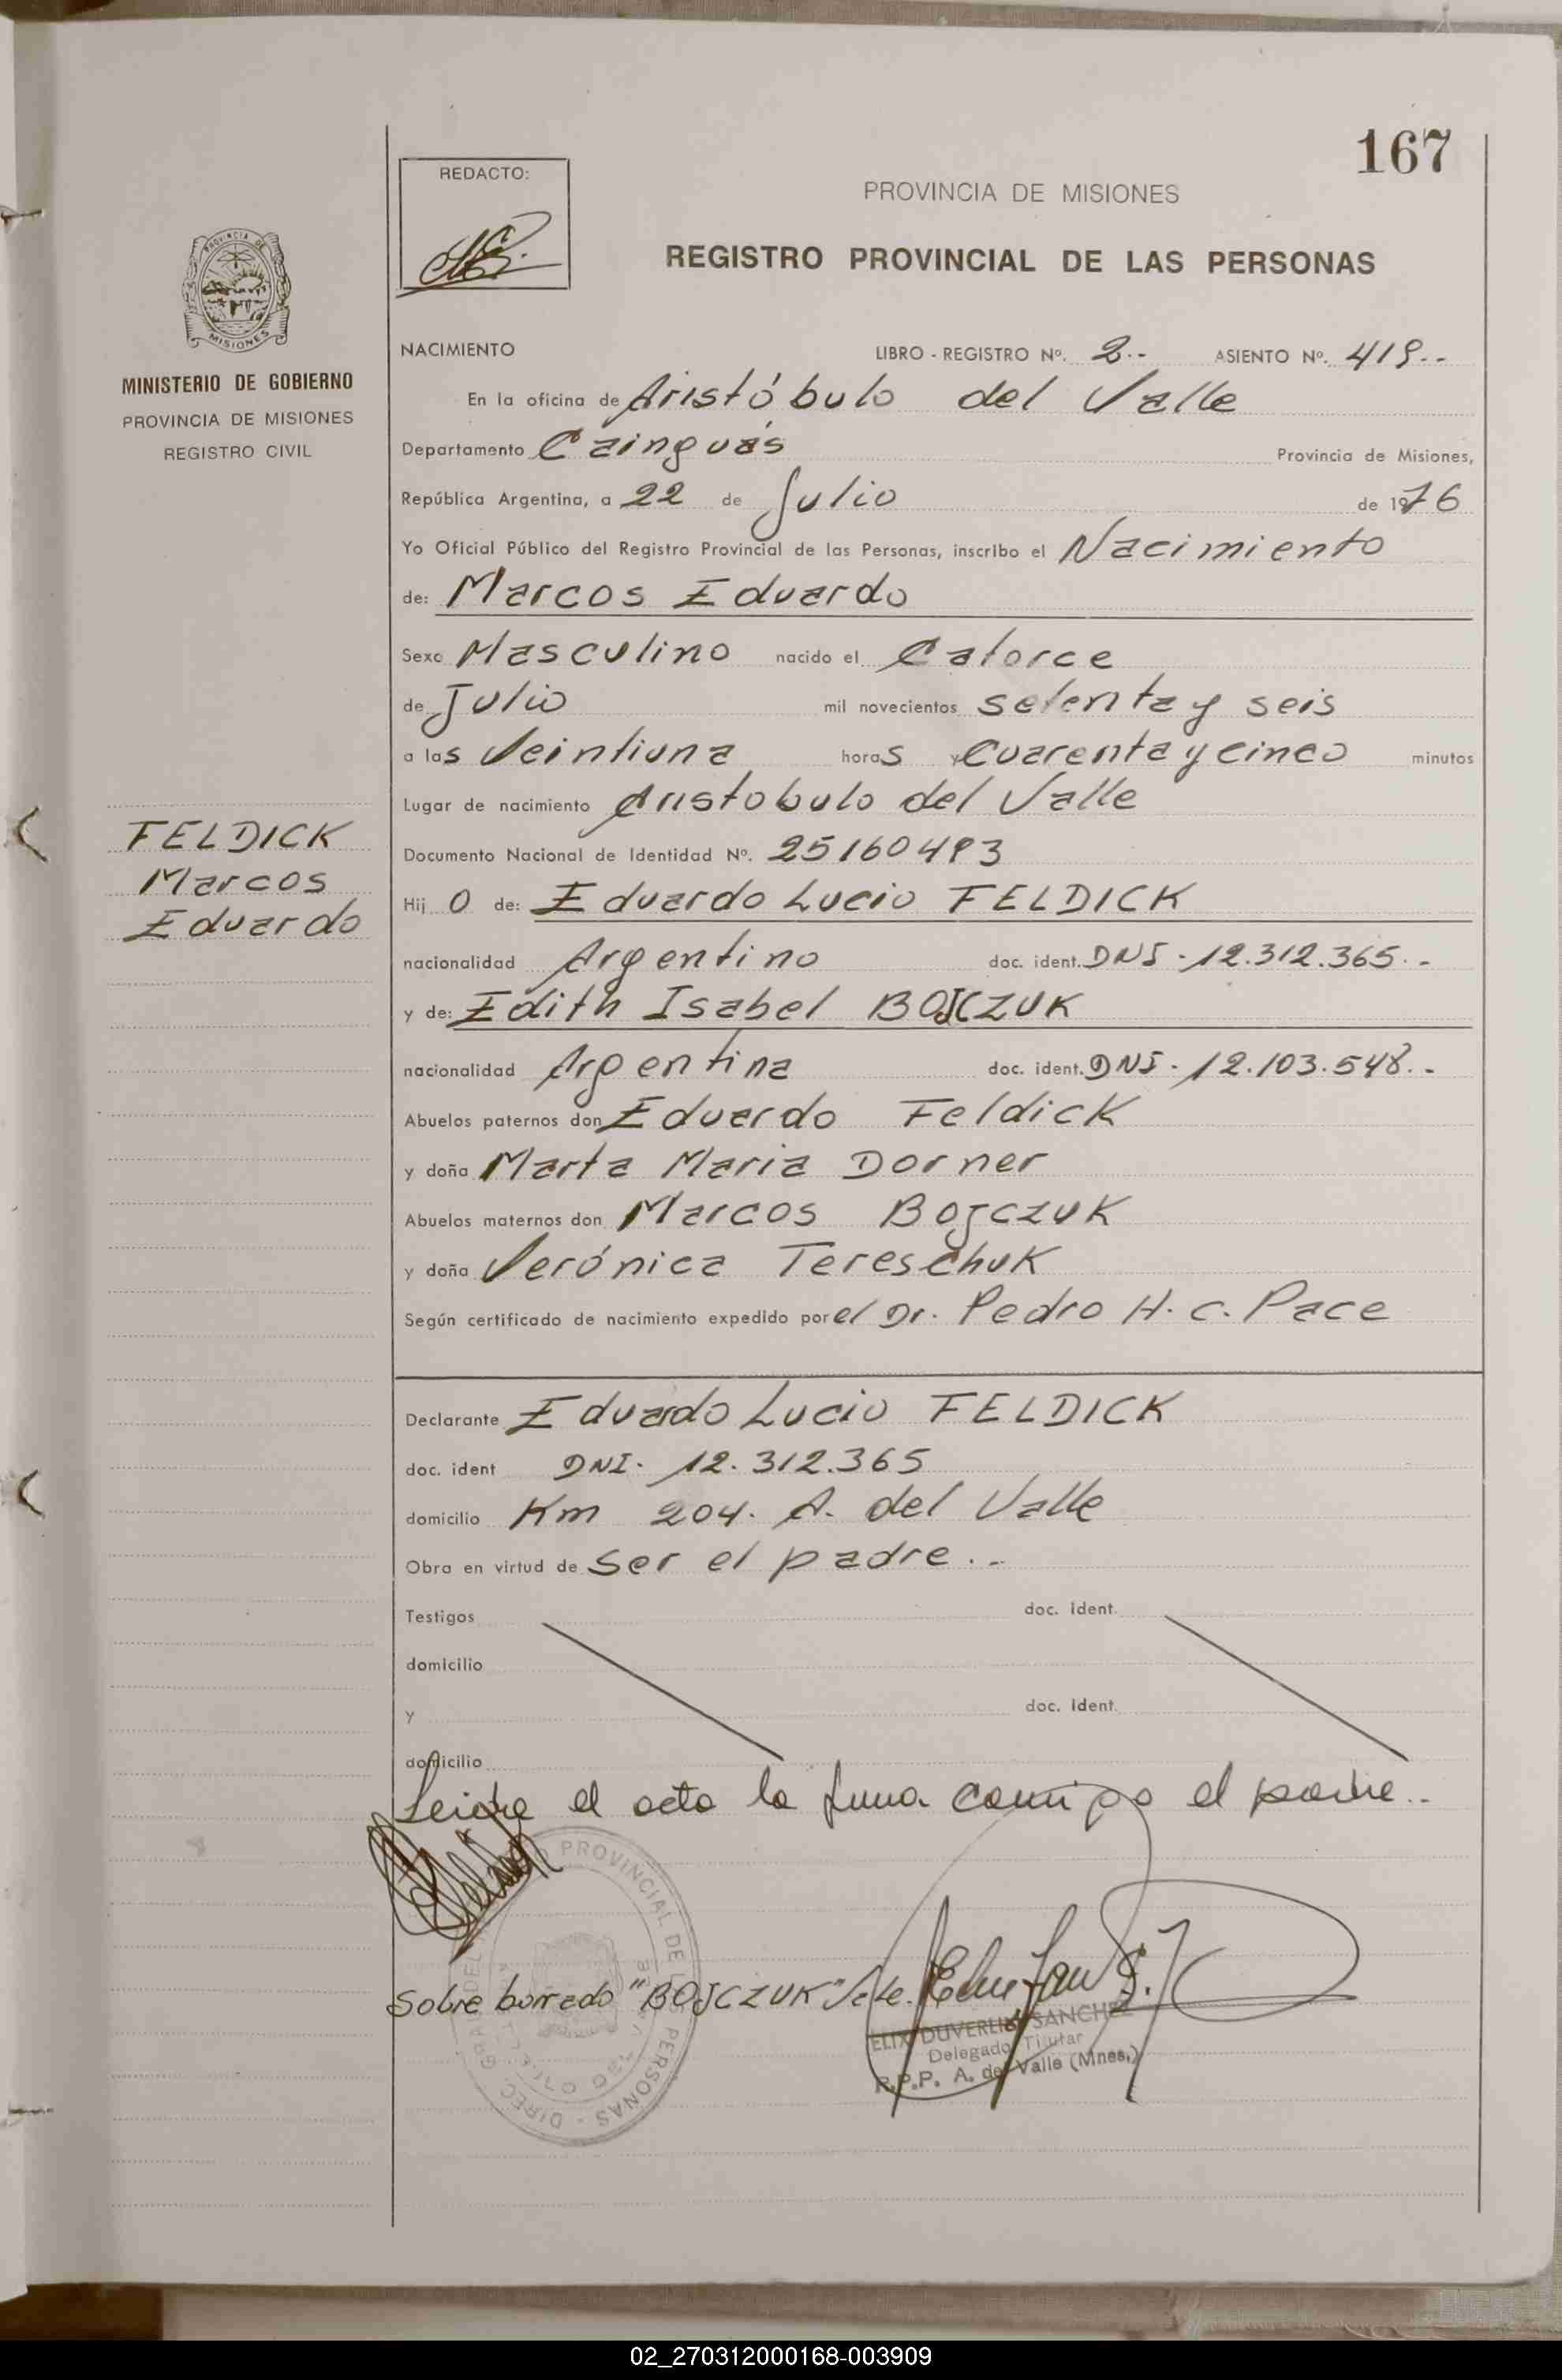 167
REDACTO:
PROVINCIA DE MISIONES
REGISTRO PROVINCIAL DE LAS PERSONAS
PROVINCIA DE
MISIONES
MINISTERIO DE GOBIERNO
PROVINCIA DE MISIONES
REGISTRO CIVIL
NACIMIENTO LIBRO - REGISTRO Nº. 2.- ASIENTO Nº. 419.-
En la oficina de Aristóbulo del Valle
Departamento Cainguás Provincia de Misiones,
República Argentina, a 22 de Julio de 1976
Yo Oficial Público del Registro Provincial de las Personas, inscribo el Nacimiento
de: Marcos Eduardo
Sexo Masculino nacido el Catorce
de Julio mil novecientos setenta y seis
a las Veintiuna horas y Cuarenta y cinco minutos
Lugar de nacimiento Aristobulo del Valle
Documento Nacional de Identidad Nº. 25160493
FELDICK
Marcos
Eduardo
Hij o de: Eduardo Lucio FELDICK
nacionalidad Argentino doc. ident. DNI - 12.312.365.-
y de: Edith Isabel BOJCZUK
nacionalidad Argentina doc. ident. DNI - 12.103.548.-
Abuelos paternos don Eduardo Feldick
y doña Marta Maria Dorner
Abuelos maternos don Marcos Bojczuk
y doña Verónica Tereschuk
Según certificado de nacimiento expedido por el Dr. Pedro H. C. Pace
Declarante Eduardo Lucio FELDICK
doc. ident DNI. 12.312.365
domicilio Km 204. A. del Valle
Obra en virtud de ser el padre.-
Testigos doc. ident.
domicilio
y doc. ident.
domicilio
Leida el acta la firma conmigo el padre.-
Sobre borrado "BOJCZUK" Vale.
PROVINCIAL DE PERSONAS - DIREC. GRAL DEL
SANCHEZ
Delegado Titular
R.P.P. A. del Valle (Mnes.)
02_270312000168-003909